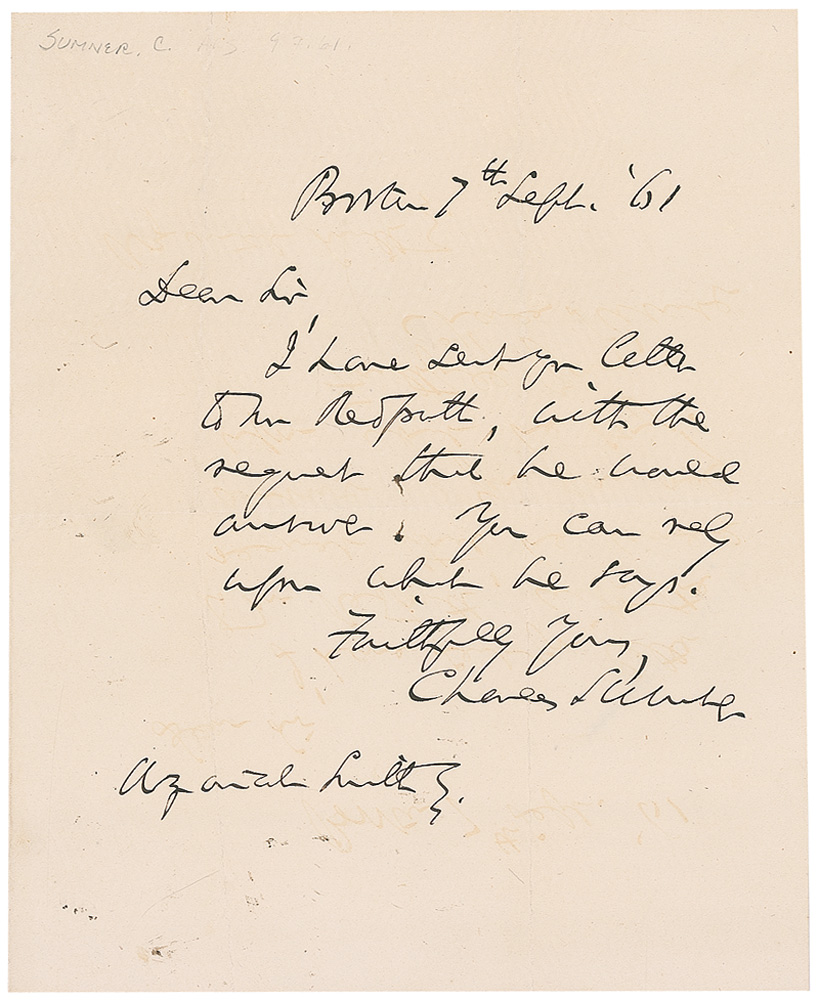 SUMNER, C. 9.7.61.
Boston 7th Sept. '61
Dear Sir,
I have sent yr letter
to Mr Redpath, with the
request that he would
answer. You can rely
upon what he says.
Faithfully Yours,
Charles Sumner
Azariah Smith